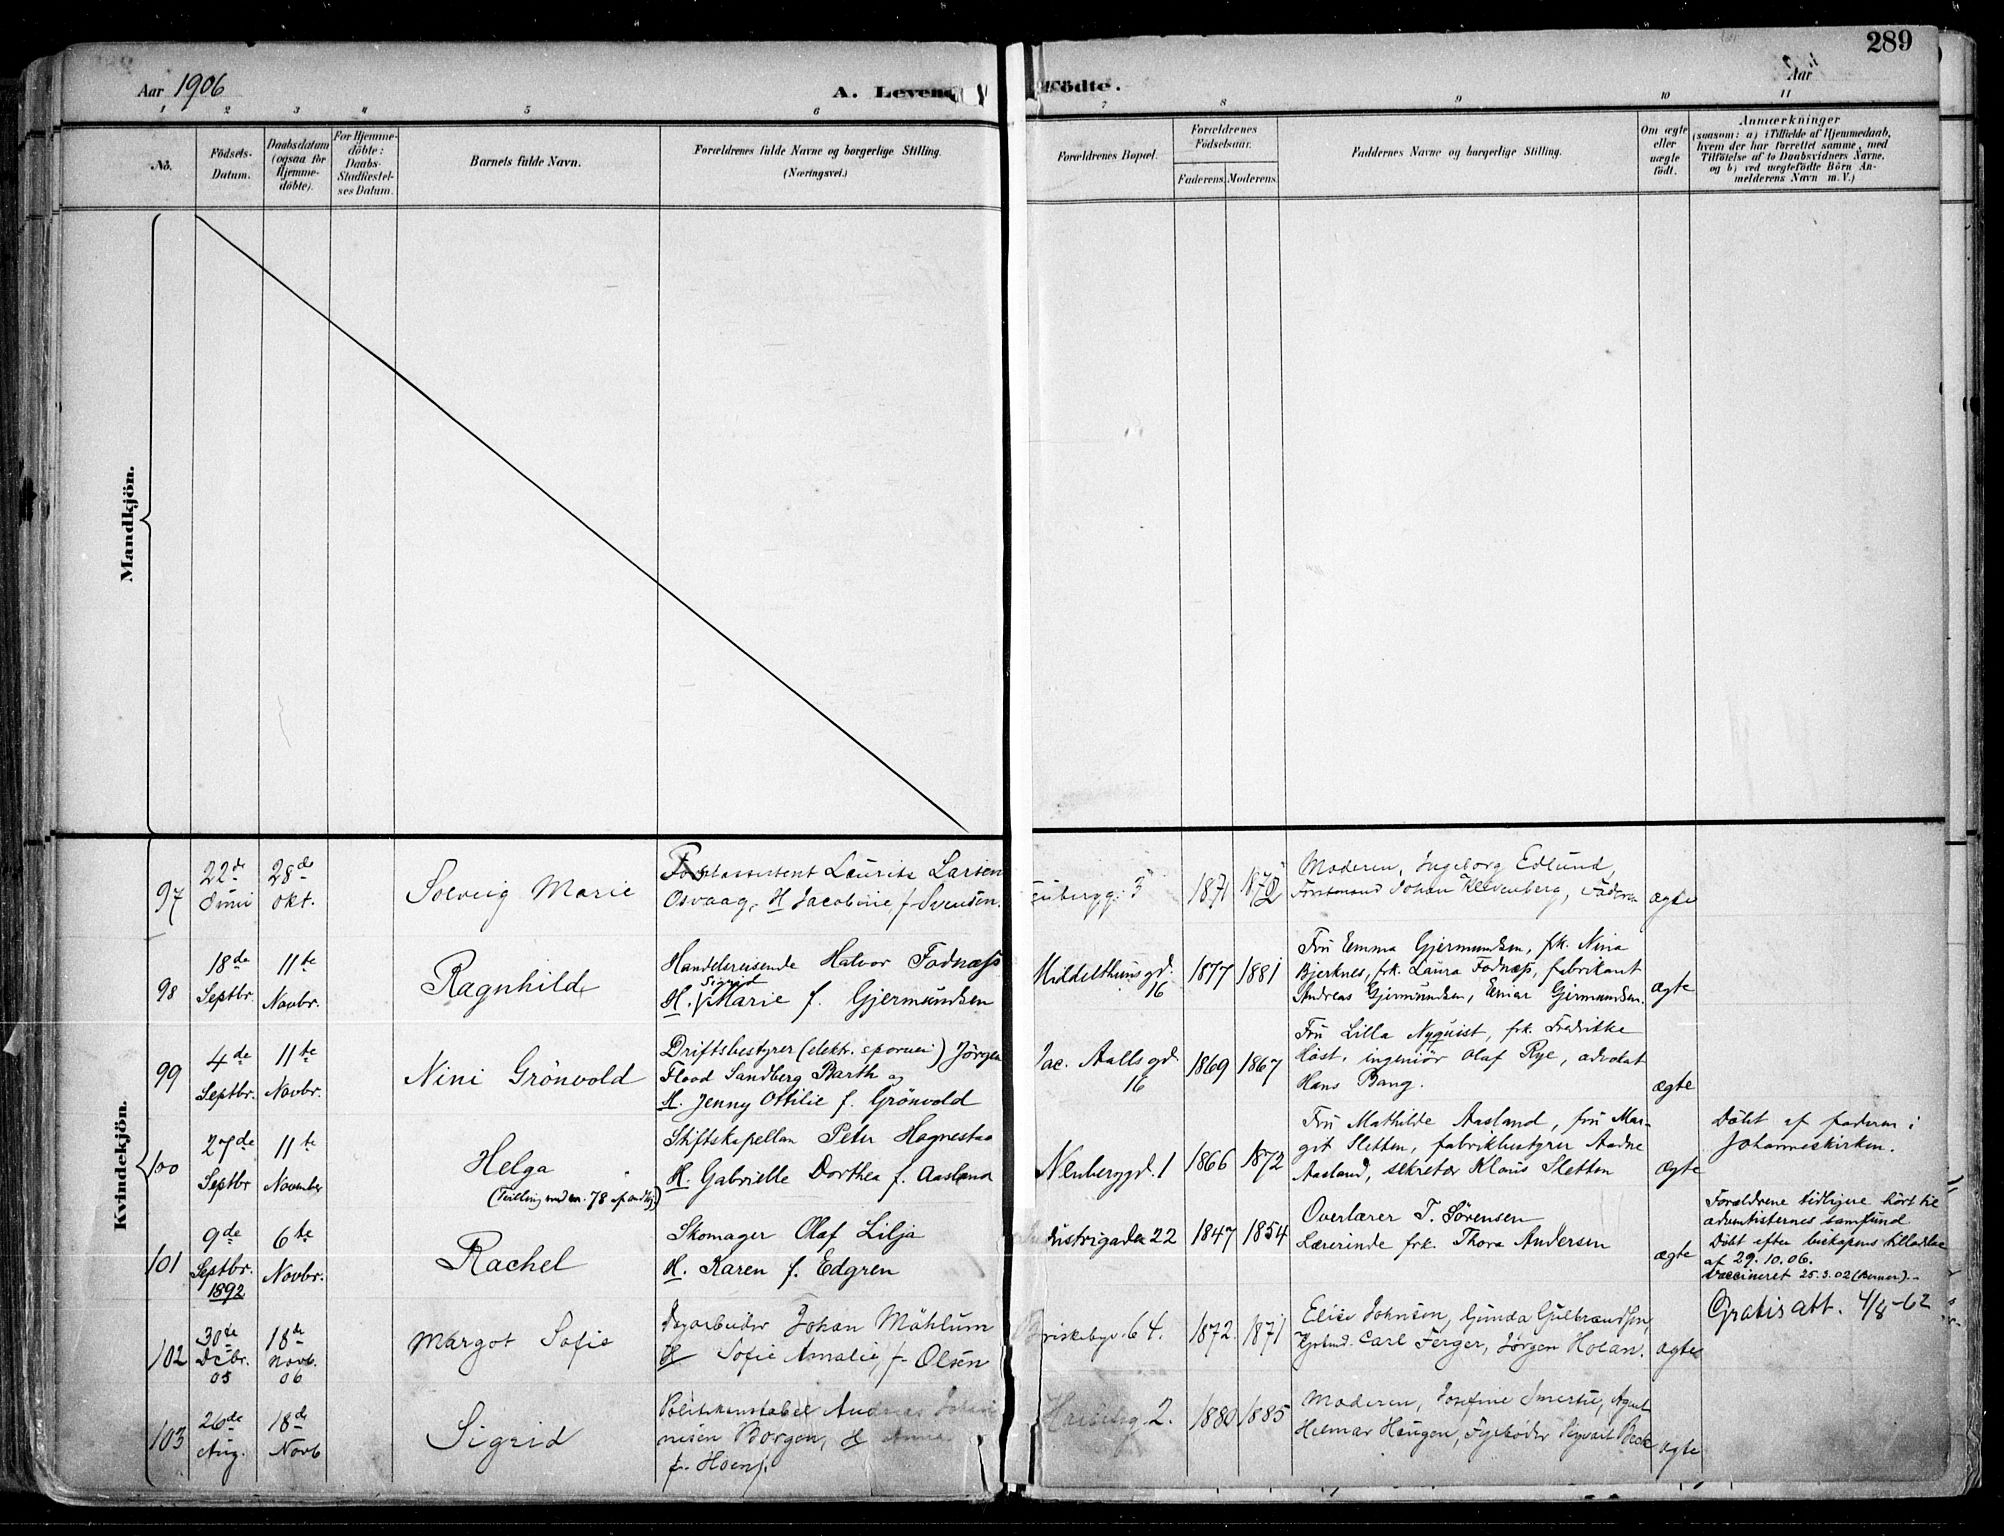 289
Aar 1906
A. Levende Födte.
Aar
1 2 3 4 5 6 7 8 9 10 11
No.
Födsels-
Datum.
Daabsdatum
(ogsaa for
Hjemme-
döbte).
For Hjemme-
döbte:
Daabs-
Stadfæstel-
ses Datum.
Barnets fulde Navn.
Forældrenes fulde Navne og borgerlige Stilling.
(Næringsvei.)
Forældrenes Bopæl.
Forældrenes
Födselsaar.
Faderens.
Moderens.
Faddernes Navne og borgerlige Stilling.
Om ægte
eller
uægte
födt.
Anmærkninger
(saasom: a) i Tilfælde af Hjemmedaab,
hvem der har forrettet samme, med
Tilföielse af to Daabsvidners Navne.
og b) ved uægtefödte Börn An-
melderens Navn m. V.)
Mandkjön.
Kvindekjön.
97
22de
Juni
28de
Okt.
Solveig Marie
Postassistent Laurits Larsen
Osvaag, H Jacobine f. Svensen.
5
1871
1872
Moderen, Ingeborg Edlund,
Johan Klevenberg, Faderen
ægte
98
18de
Septbr.
11te
Novbr.
Ragnhild
Handelsreisende Halvor Fodnæss
H. Sigrid Marie f. Gjermundsen
Middelthuns gd.
16
1877
1881
Fru Emma Gjermundsen, frk. Nina
Bjerknes, frk. Laura Fodnæss, fabrikant
Andreas Gjermundsen, Einar Gjermundsen.
ægte
99
4de
Septbr.
11te
Novbr.
Nini Grönvold
Driftsbestyrer (elekt. sporvei) Jörgen
Flood Sandberg Barth og
H. Jenny Ottilie f. Grönvold
Jac. Aalls gd.
16
1869
1867
Fru Lilla Nyquist, frk. Fredrikke
Höst, ingeniör Olaf Rye, advokat
Hans Bang.
ægte
100
27de
Septbr
11te
November
Helga
(Tvilling med no. 78 af mandkj.)
Stiftskapellan Peter Hognestad
H. Gabrielle Dorthea f. Aasland
Neuberggd. 1
1866
1872
Fru Mathilde Aasland, fru Mar-
git Sletten, fabrikbestyrer Aadne
Aasland, sekretær Klaus Sletten
ægte
Döbt af faderen i
Johanneskirken.
101
9de
Septbr.
1892
6te
Novbr.
Rachel
Skomager Olaf Lilja
H. Karen f. Edgren
Industrigaden 22
1847
1854
Overlærer T. Sörensen
Lærerinde frk. Thora Andersen
ægte
Forældrene tidligere hört til
adventisternes samfund
Döbt efter biskopens tilladelse
af 29.10.06.
Vaccineret 25.3.02
102
30te
Dcbr.
05
18de
Novb.
06
Margot Sofie
Dagarbeider Johan Möhlum
H Sofie Amalie, f. Olsen
Briskebyv. 64.
1872.
1871
Elise Johnsen, Gunda Gulbrandsen,
Carl Ferger, Jörgen Holan.
ægte
Gratis att. 4/8-62
103
26de
Aug.
18de
Novb
Sigrid
Politikonstabel Andreas Johan-
nesen Borgen, H Anna
f. Hoens.
2.
1880
1885
Moderen, Josefine
Helmar Haugen, Sigvart Beck
ægte